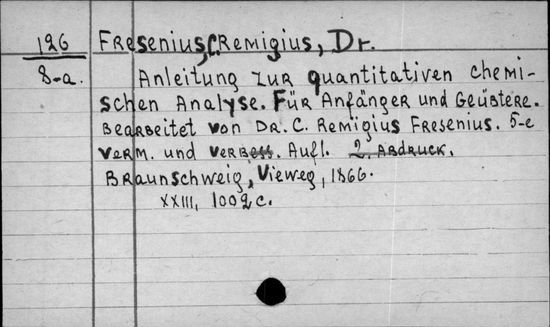 126 Fresenius, C. Remigius, Dr.
8-a. Anleitung zur quantitativen chemi-
schen Analyse. Für Anfänger und Geübtere.
Bearbeitet von Dr. C. Remigius Fresenius. 5-e
verm. und verbess. Aufl. 2. Abdruck.
Braunschweig, Vieweg, 1866.
XXIII, 1002 c.